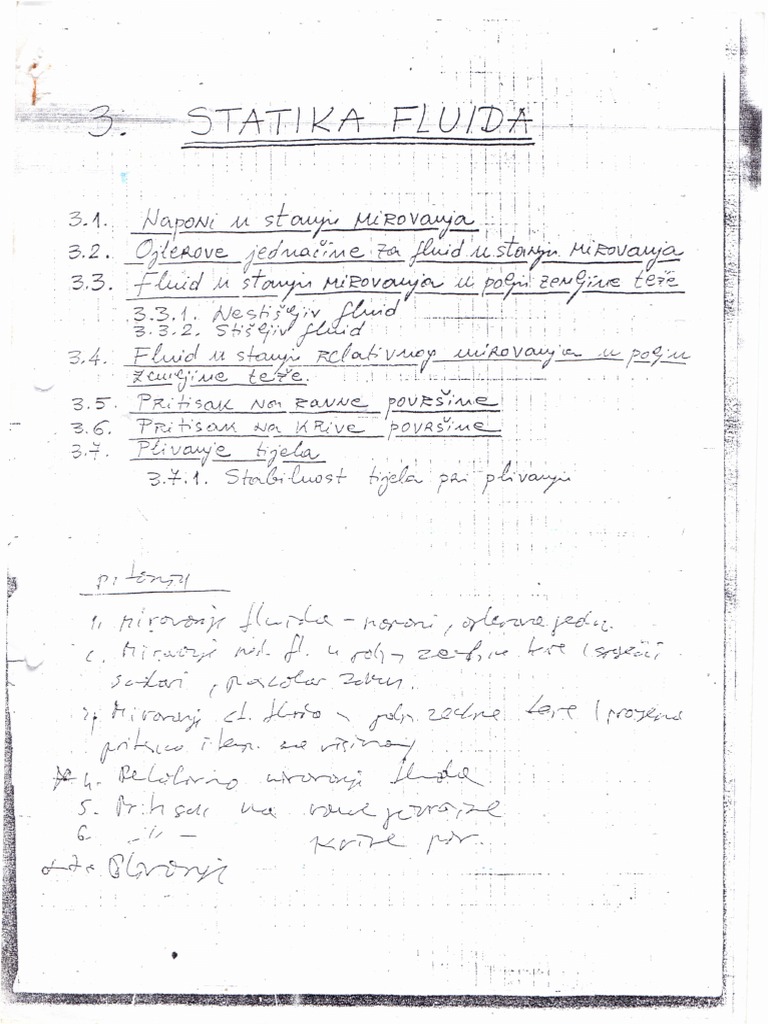 3. STATIKA FLUIDA
3.1. Naponi u stanju mirovanja
3.2. Ojlerove jednačine za fluid u stanju mirovanja
3.3. Fluid u stanju mirovanja u polju zemljine teže
3.3.1. Nestišljiv fluid
3.3.2. Stišljiv fluid
3.4. Fluid u stanju relativnog mirovanja u polju
zemljine teže.
3.5 Pritisak na ravne površine
3.6. Pritisak na krive površine
3.7. Plivanje tijela
3.7.1. Stabilnost tijela pri plivanju
pitanja
1. Mirovanje fluida - naponi, ojlerove jedn.
Mirovanje fl. u polju zemljine teže
sudovi,
Mirovanje st. fluida u polju zemljine teže (promjena
pritiska i temp. sa visinom)
4. Relativno mirovanje fluida
5. Pritisak na ravne površine
6. -"- krive pov.
7. Plivanje